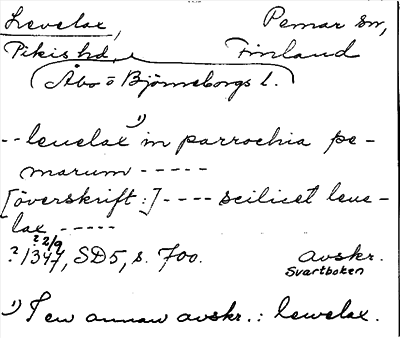 Levelax, Pemar sn,
Pikis hd, Finland
(Åbo o Björneborgs l.)
-- leuelax ¹) in parrochia pe-
marum -----
[överskrift:] ---- scilicet leue-
lax -----
? 2/9
? 1347, SD5, s. 700. avskr.
Svartboken
¹) I en annan avskr.: lewelax.